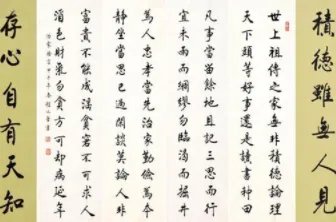 積德雖無人見
世上祖傳之家無非積德論理
天下頭等好事還是讀書種田
凡事當留餘地且記三思而行
宜未雨而綢繆勿臨渴而掘井
為人忠孝當先治家勤儉為
靜坐當思己過閒談莫論人非
富貴不能成淫貧窮不可求人
酒色財氣勿貪方可却病延年
治家格言甲午年
存心自有天知